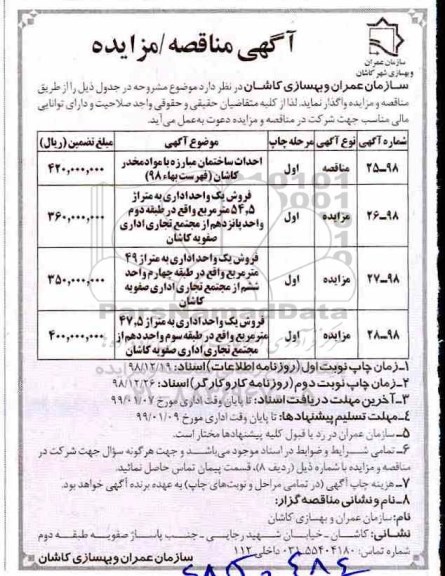 آگهی مناقصه/مزایده
سازمان عمران
و بهسازی شهر کاشان
سازمان عمران وبهسازی کاشان در نظر دارد موضوع مشروحه در جدول ذیل را از طریق
مناقصه و مزایده واگذار نماید. لذا از کلیه متقاضیان حقیقی و حقوقی واجد صلاحیت و دارای توانایی
مالی مناسب جهت شرکت در مناقصه و مزایده دعوت به عمل می آید.
شماره آگهی نوع آگهی مرحله چاپ موضوع آگهی مبلغ تضمین (ریال)
۲۵-۹۸ مناقصه اول احداث ساختمان مبارزه با مواد مخدر ۴۲۰,۰۰۰,۰۰۰
کاشان (فهرست بهاء ۹۸)
فروش یک واحد اداری به متراژ
۲۶-۹۸ مزایده اول ۵۴,۵ متر مربع واقع در طبقه دوم ۳۶۰,۰۰۰,۰۰۰
واحد پانزدهم از مجتمع تجاری اداری
صفویه کاشان
فروش یک واحد اداری به متراژ ۴۹
۲۷-۹۸ مزایده اول مترمربع واقع در طبقه چهارم واحد ۳۵۰,۰۰۰,۰۰۰
ششم از مجتمع تجاری اداری صفویه
کاشان
فروش یک واحد اداری به متراژ ۴۷,۵
۲۸-۹۸ مزایده اول مترمربع واقع در طبقه سوم واحد دهم از ۴۰۰,۰۰۰,۰۰۰
مجتمع تجاری اداری صفویه کاشان
۱-زمان چاپ نوبت اول (روزنامه اطلاعات) اسناد: ۹۸/۱۲/۱۹
۲-زمان چاپ نوبت دوم (روزنامه کار و کارگر) اسناد: ۹۸/۱۲/۲۶
۳-آخرین مهلت دریافت اسناد: تا پایان وقت اداری مورخ ۹۹/۰۱/۰۷
۴-مهلت تسلیم پیشنهادها: تا پایان وقت اداری مورخ ۹۹/۰۱/۰۹
۵-سازمان عمران در رد یا قبول کلیه پیشنهادها مختار است.
۶-تمامی شرایط و ضوابط در اسناد موجود می‌باشد و جهت هرگونه سؤال جهت شرکت در
مناقصه و مزایده با شماره ذیل (ردیف ۸)، قسمت پیمان تماس حاصل نمائید.
۷-هزینه چاپ آگهی (در تمامی مراحل و نوبت‌های چاپ) به عهده برنده آگهی خواهد بود.
۸-نام و نشانی مناقصه گزار:
نام: سازمان عمران و بهسازی کاشان
نشانی: کاشان - خیابان شهید رجایی - جنب پاساژ صفویه طبقه دوم
شماره تماس: ۵۵۴۰۴۱۸۰-۰۳۱ داخلی ۱۱۲
سازمان عمران وبهسازی کاشان